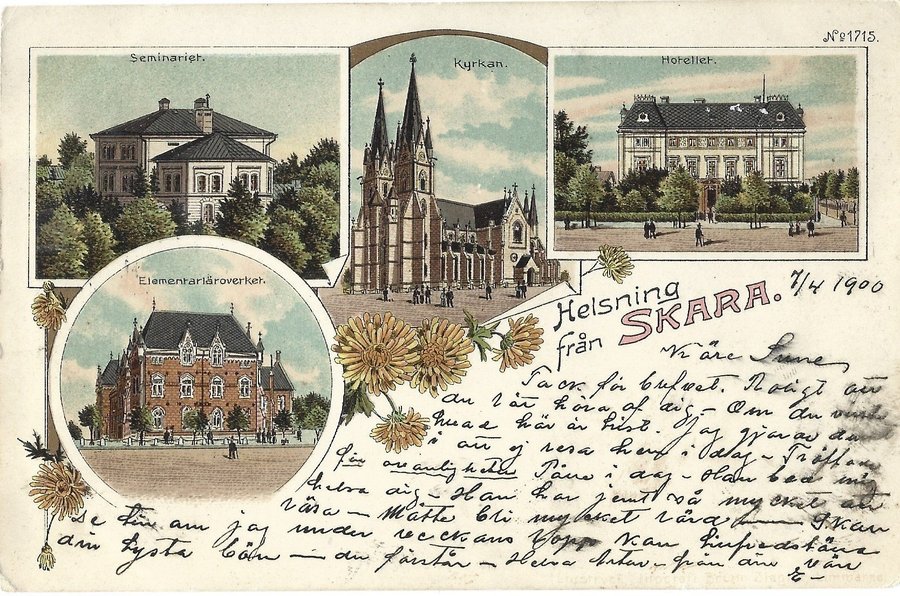 No 1715.
Seminariet.
Kyrkan.
Hotellet.
Elementarläroverket.
Helsning
från SKARA.
7/4 1900
Käre Sune
Tack för brefvet. Roligt att
du lät höra af dig – Om du
huad här är trist. Jag
i att ej resa hem i dag – Träffade
för dag – Han bad mig
helsa dig – Han har jemt så mycket att
läsa – Måtte bli mycket lärd – Skall
se till om jag under veckans lopp kan
din lysta bön – du förstår – Helsa – från din vän
E –